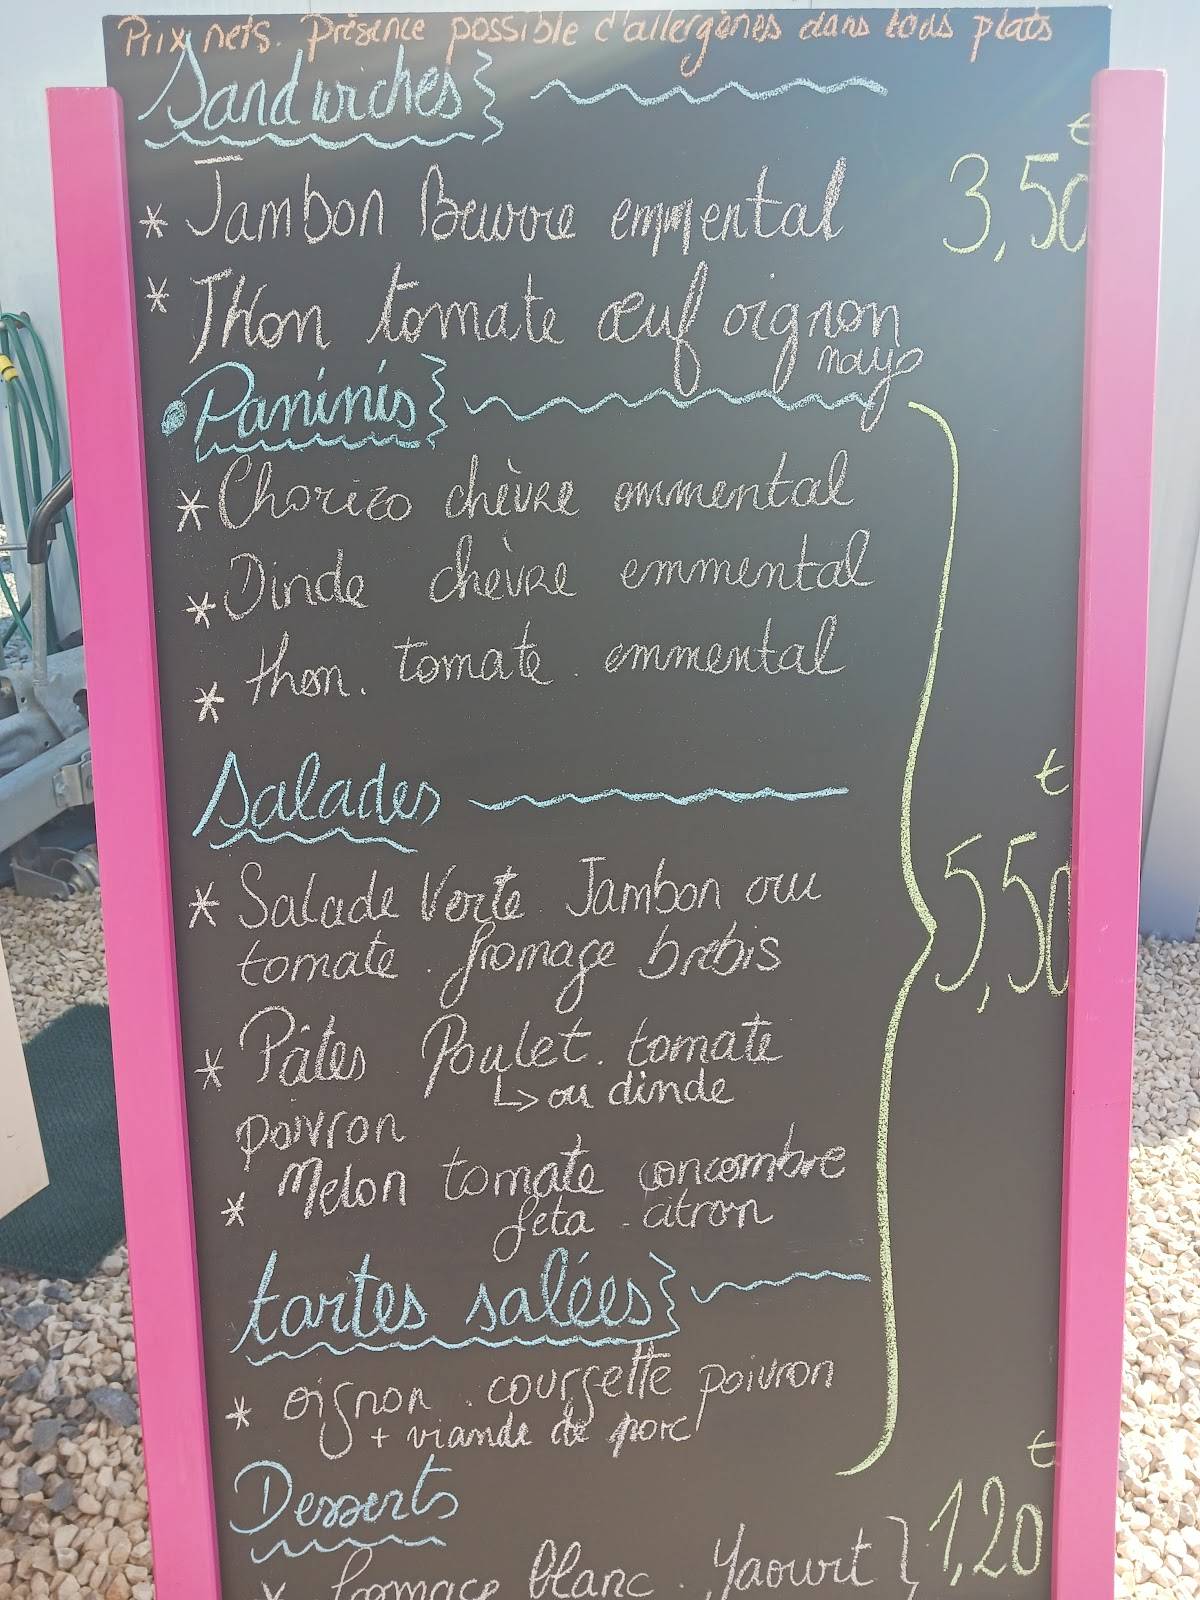 Prix nets. Présence possible d'allergènes dans tous plats
Sandwiches
* Jambon Beurre emmental
€
3,50
* Thon tomate œuf oignon
mayo
Paninis
* Chorizo chèvre emmental
* Dinde chèvre emmental
* thon. tomate. emmental
Salades
€
5,50
* Salade Verte Jambon ou
tomate. fromage brebis
* Pâtes Poulet. tomate
↳ ou dinde
poivron
* Melon tomate concombre
feta - citron
tartes salées
* oignon. courgette poivron
+ viande de porc
Desserts
€
1,20
* fromage blanc. Yaourt